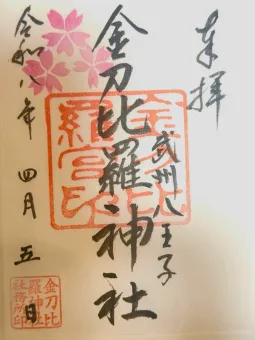 奉拝
武州八王子
金刀比羅神社
令和八年
四月
五日
金刀比
羅宮印
金刀比
羅神社
社務所印